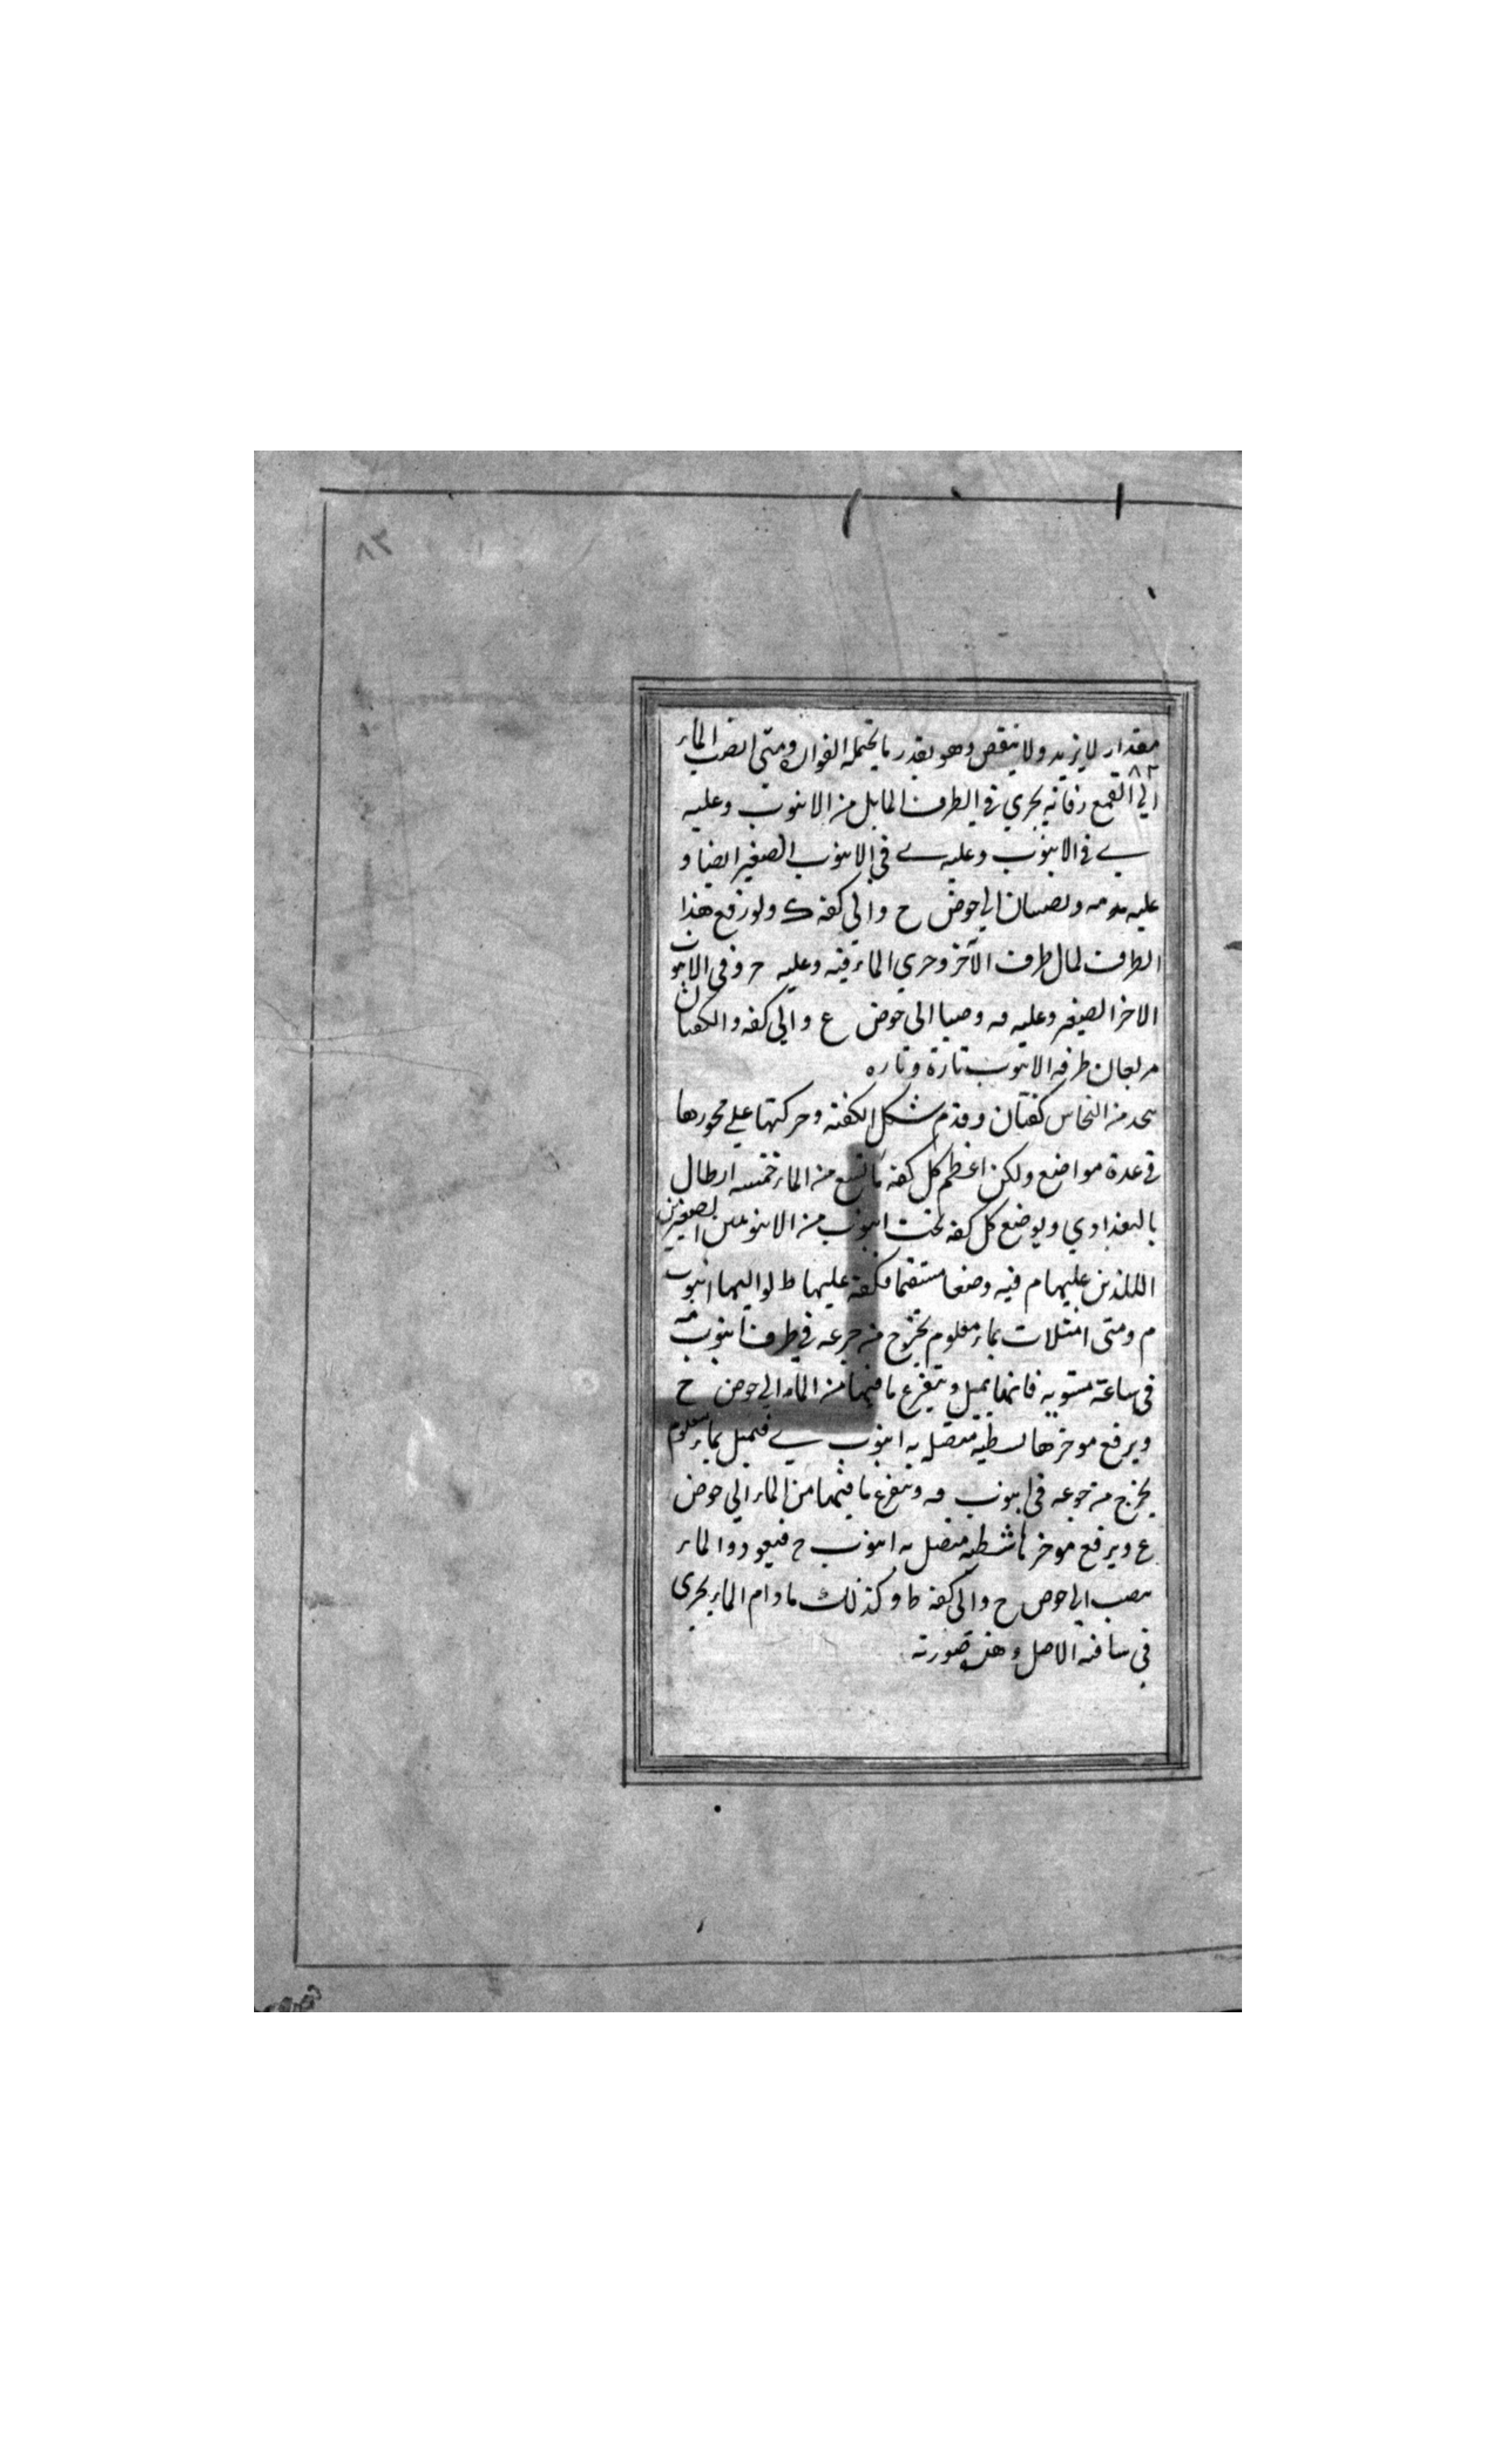 ٨٢
مقدار لا يزيد ولا ينقص وهو بقدر ما يحتمله الفوارة ومتى انصب الماء
٨٢
الى القمع فانه يجري في الطرف المايل من الانبوب وعليه
ے في الانبوب وعليه ے في الانبوب الصغير ايضا و
عليه ويصبان الى حوض ح والى كفه ك ولو رفع هذا
الطرف لمال طرف الآخر وجرى الماء فيه وعليه ح وفي الانبوب
الاخر الصغير وعليه فه وصبا الى حوض ع والى كفه والكفتان
طرفه الانبوب تارة وتاره
يتخذ من النحاس كفتان وقدم شكل الكفة وحركتها على محورها
في عدة مواضع ولكن اعظم كل كفه ما تسع من الماء خمسه ارطال
بالبغدادي ويوضع كل كفه تحت انبوب من الانبوبين الصغيرين
اللذين عليهما م فيه وضعا مستقيما فكفة عليها ط لواليها انبوب
م ومتى امتلات بماء معلوم يخرج من جرعه في طرف انبوب مه
في ساعة مستويه فانها يميل ويتفرغ ما فيها من الماء الى حوض ح
ويرفع موخرها لسطيه متصله به انبوب ے فتميل بماء معلوم
يخرج من جرعه في انبوب فه وتتفرغ ما فيها من الماء الى حوض
ع ويرفع موخرها شطيه متصل به انبوب ح فيعود والماء
يصب الى حوض ح والى كفه ط وكذلك ما دام الماء يجري
في ساقيه الاصل وهذه صورته